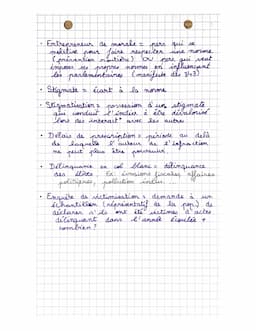 • Entrepreneur de morale = pers qui se
mobilise pour faire respecter une norme
(prévention routière) OU pers qui veut
imposer ses propres normes en influençant
les parlementaires (manifeste des 343)
• Stigmate = écart à la norme
• Stigmatisation = possession d'un stigmate
qui conduit l'individu à être dévalorisé
lors des interact° avec les autres
• Délais de prescription = période au delà
de laquelle l'auteur de l'infraction
ne peut plus être poursuivi.
• Délinquance en col blanc = délinquance
des élites. Ex: évasions fiscales, affaires
politiques, pollution indus. ...
• Enquête de victimisation = demande à un
échantillon (représentatif de la pop.) de
déclarer s'ils ont été victimes d'actes
délinquant dans l'année écoulée +
combien?